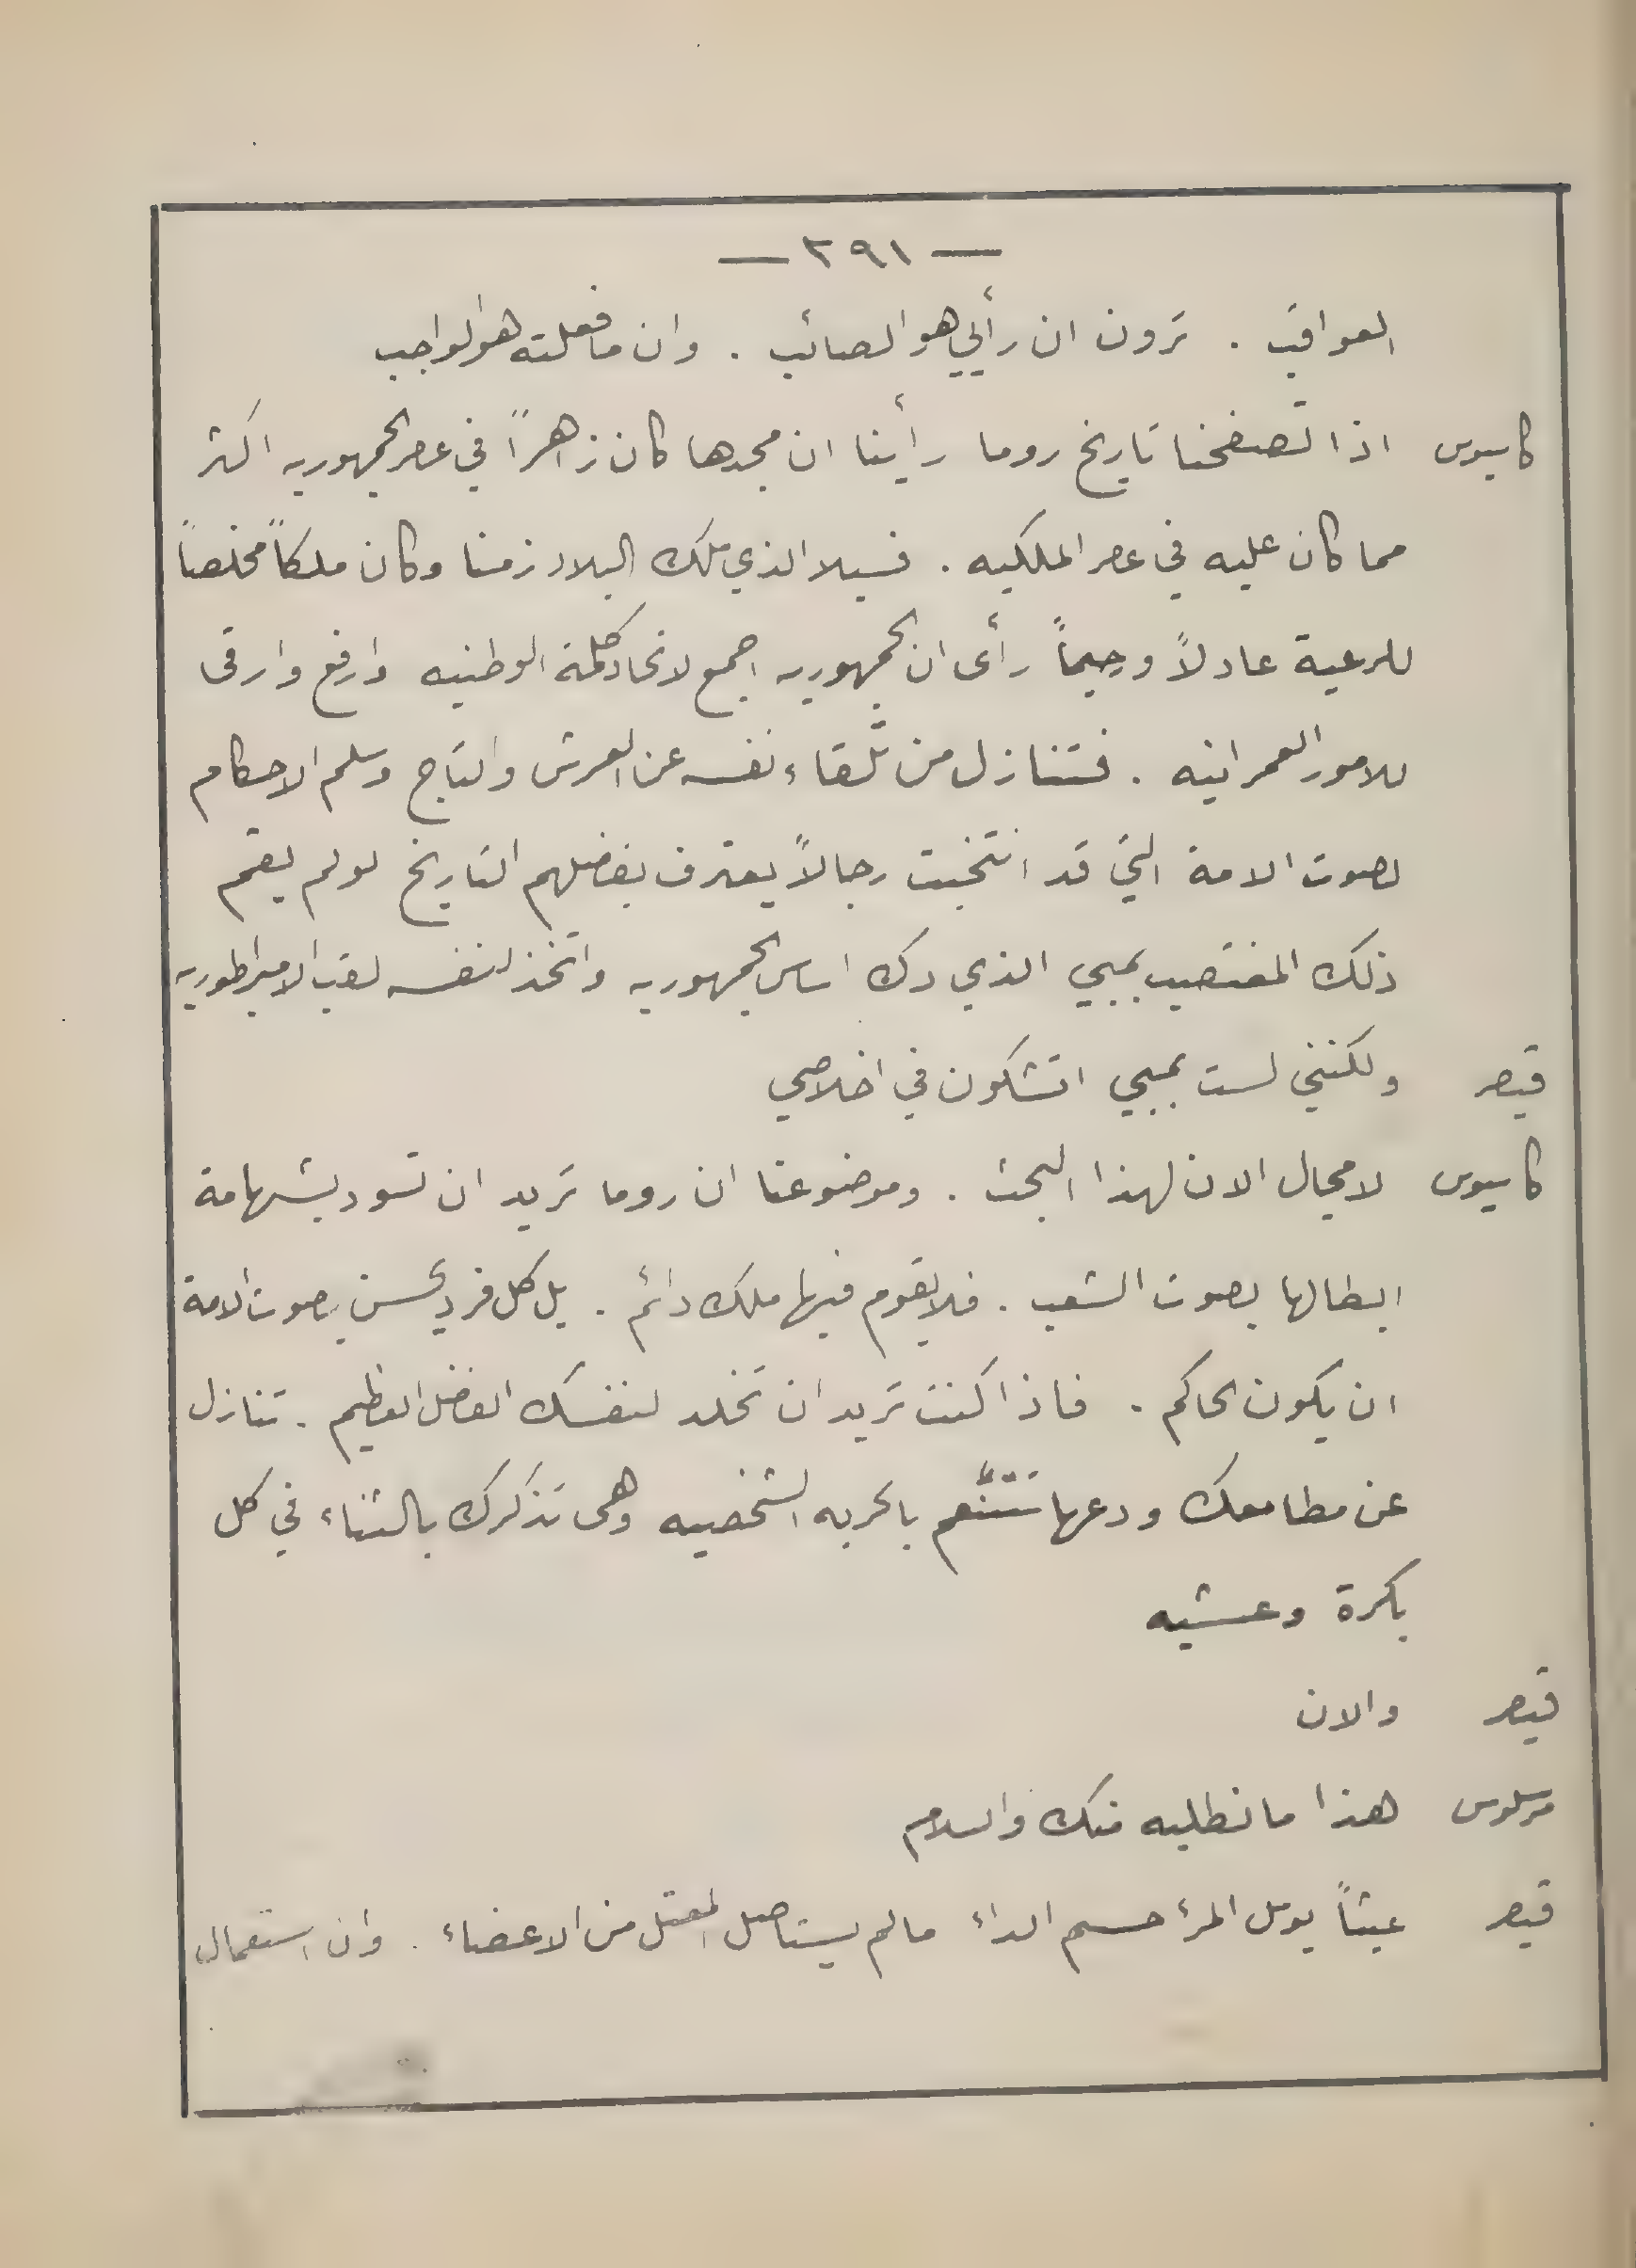 — ٢٩١ —
العواقب . ترون ان رأيي هو الصائب . وان ما فعلته هو الواجب
كاسيوس اذا تصفحنا تاريخ روما رأينا ان مجدها كان زاهراً في عصر الجمهوريه اكثر
مما كان عليه في عصر الملكيه . فسيلا الذي ملك البلاد زمنا وكان ملكاً مخلصاً
للرعية عادلاً ورحيماً رأى ان الجمهوريه اجمع لاتحاد كلمة الوطنيه وارفع وارقى
للامور العمرانيه . فتنازل من تلقاء نفسه عن العرش والتاج وسلم الاحكام
لصوت الامة التي قد انتخبت رجالاً يعترف بفضلهم التاريخ لو لم يقم
ذلك المغتصب بمبي الذي دك اساس الجمهوريه واتخذ لنفسه لقب الامبراطوريه
قيصر ولكنني لست بمبي اتشكون في اخلاصي
كاسيوس لا مجال الان لهذا البحث . وموضوعنا ان روما تريد ان تسود بشهامة
ابطالها بصوت الشعب . فلا يقوم فيها ملك دائم . بل كل فرد يحسن بصوت الامة
ان يكون الحاكم . فاذا كنت تريد ان تخلد لنفسك الفضل العظيم . تنازل
عن مطامعك ودعها تتنّعم بالحريه الشخصيه وهى تذكرك بالثناء في كل
بكرة وعشيه
قيصر والان
مرسلوس هذا ما نطلبه منك والسلام
قيصر عبثاً يومل المرٔ حسم الدأ ما لم يستاصل المعتل من الاعضاء . وان استعمال